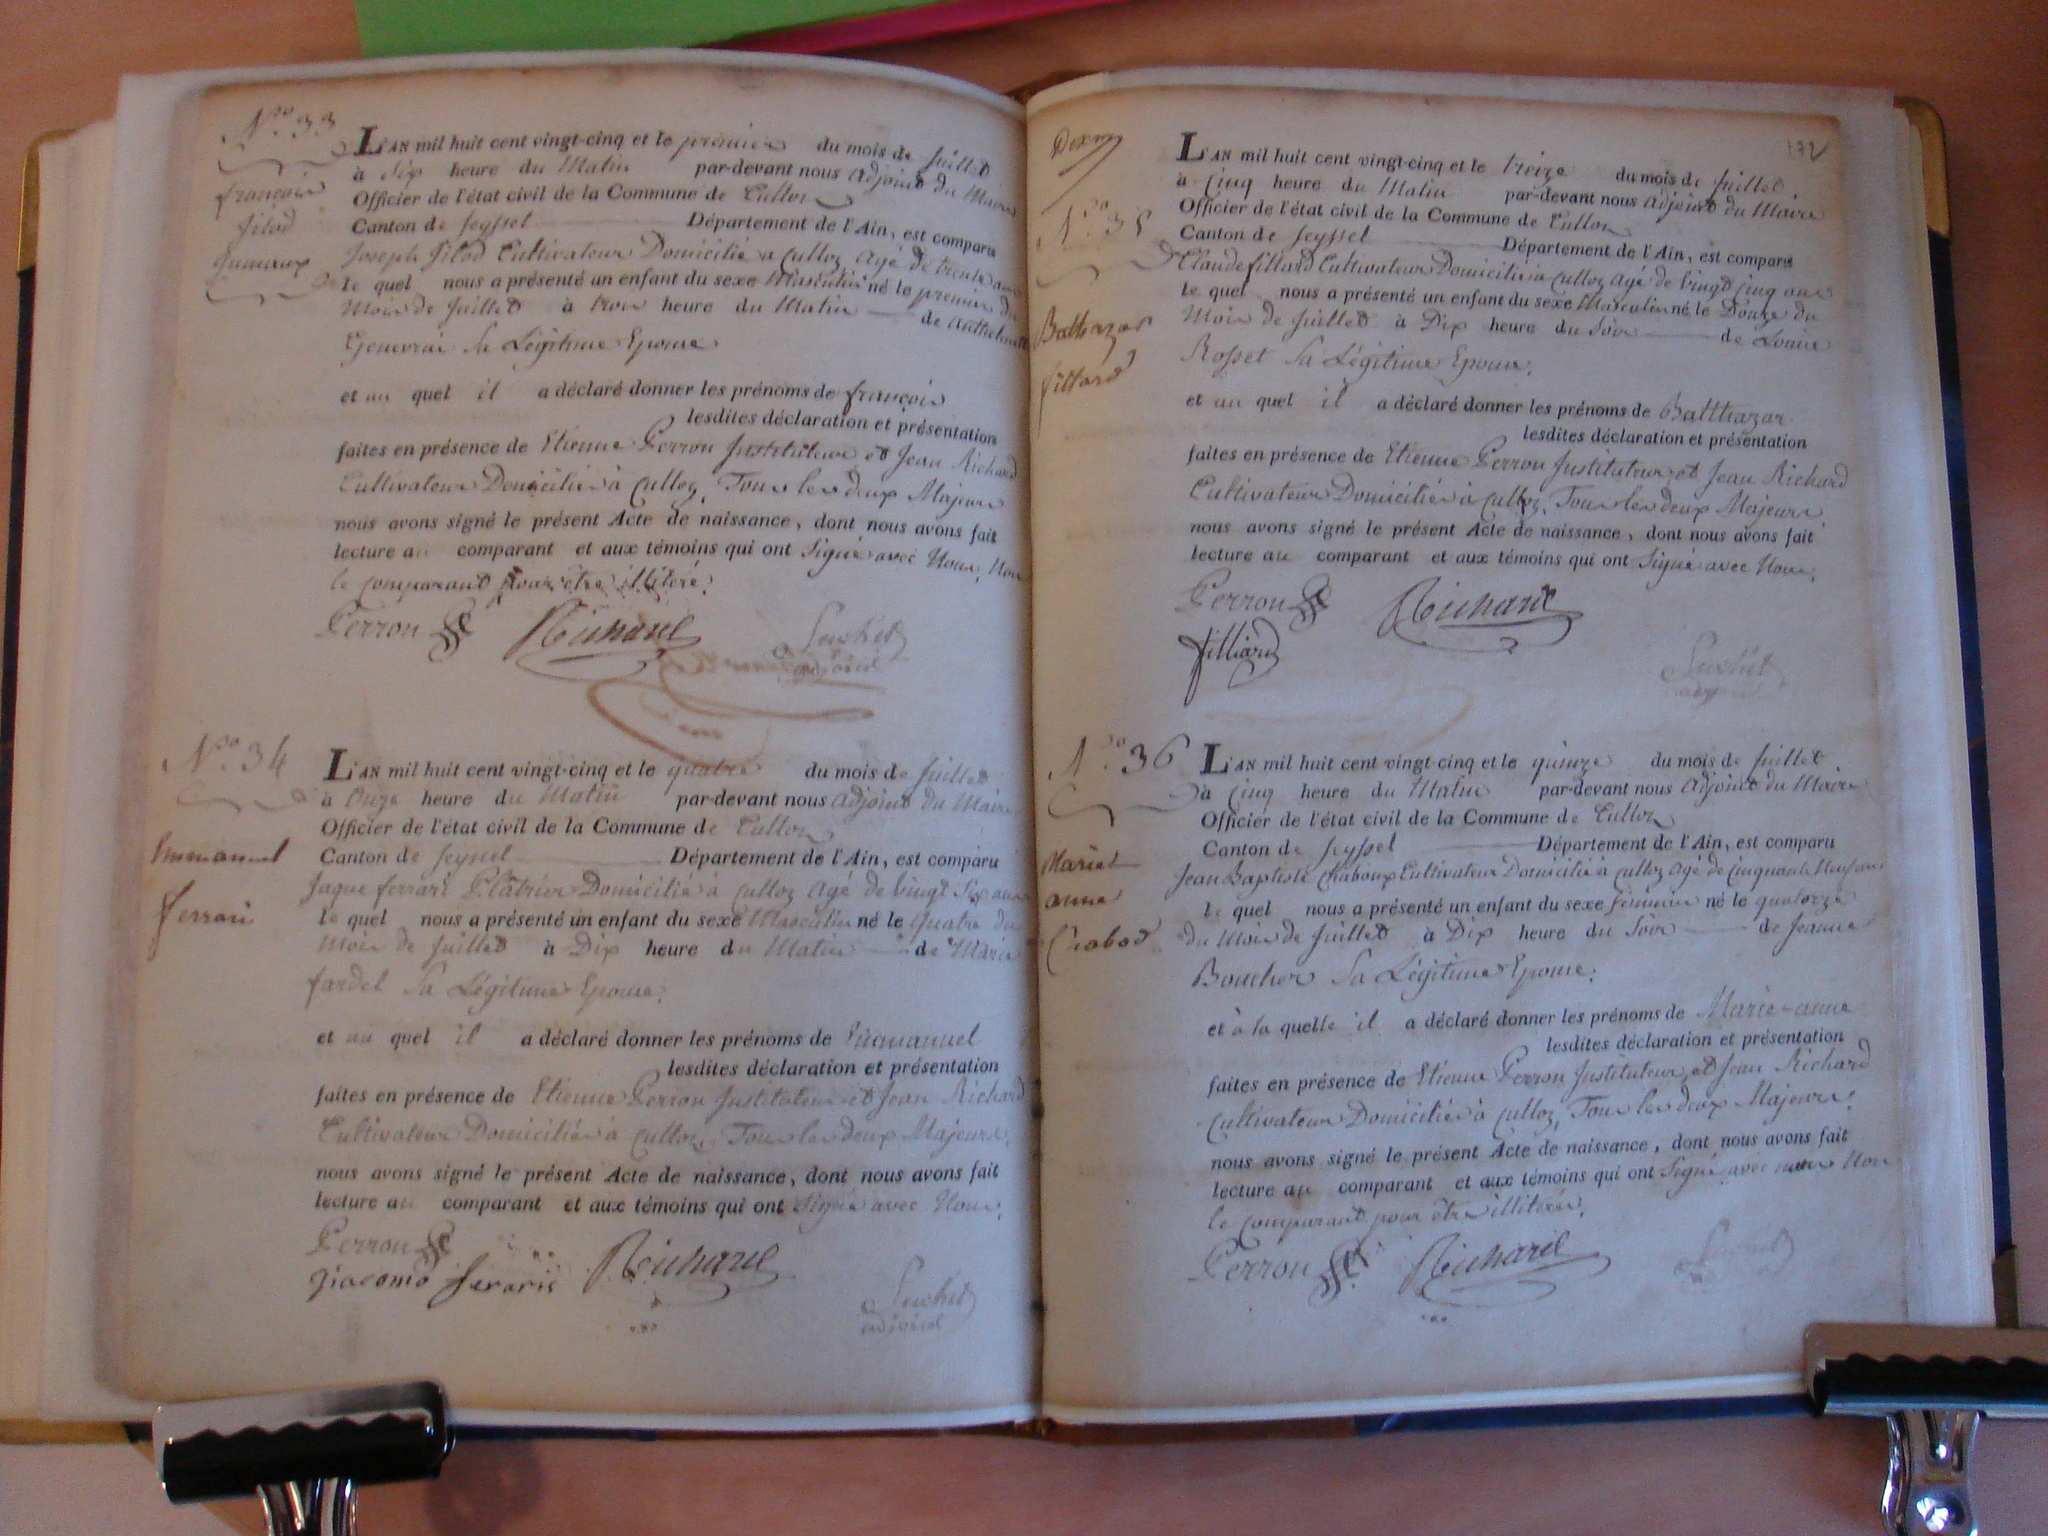 N.o 33
françois
jilod
jumeaux
L'AN mil huit cent vingt-cinq et le premier du mois de juillet
à Six heure du Matin par-devant nous adjoint du Maire
Officier de l'état civil de la Commune de Culloz
Canton de Seyssel Département de l'Ain, est comparu
Joseph Jilod Cultivateur Domicilié à Culloz Agé de trente ans
le quel nous a présenté un enfant du sexe Masculin né le premier du
Mois de Juillet à trois heure du Matin de Anthelmette
Genevrai Sa Légitime Epouse
et au quel il a déclaré donner les prénoms de françois
lesdites déclaration et présentation
faites en présence de Etienne Perron Instituteur et Jean Richard
Cultivateur Domiciliés à Culloz, Tous les deux Majeurs
nous avons signé le présent Acte de naissance, dont nous avons fait
lecture au comparant et aux témoins qui ont Signé avec Nous, Non
le comparant pour être illiteré.
Perron Richard Suchet
adjoint
N.o 34
Emmanuel
ferrari
L'AN mil huit cent vingt-cinq et le quatre du mois de Juillet
à Onze heure du Matin par-devant nous adjoint du Maire
Officier de l'état civil de la Commune de Culloz
Canton de Seyssel Département de l'Ain, est comparu
Jaque ferrari Plâtrier Domicilié à Culloz Agé de Vingt Six ans
le quel nous a présenté un enfant du sexe Masculin né le Quatre du
Mois de Juillet à Dix heure du Matin de Marie
fardel Sa Légitime Epouse.
et au quel il a déclaré donner les prénoms de Emmanuel
lesdites déclaration et présentation
faites en présence de Etienne Perron Instituteur et Jean Richard
Cultivateur Domiciliés à Culloz, Tous les deux Majeurs,
nous avons signé le présent Acte de naissance, dont nous avons fait
lecture au comparant et aux témoins qui ont Signé avec Nous,
Perron
giacomo feraris Richard Suchet
adjoint
172
N.o 35
Balthazar
fillard
L'AN mil huit cent vingt-cinq et le treize du mois de Juillet
à Cinq heure du Matin par-devant nous adjoint du Maire
Officier de l'état civil de la Commune de Culloz
Canton de Seyssel Département de l'Ain, est comparu
Claude fillard Cultivateur Domicilié à Culloz Agé de Vingt cinq ans
le quel nous a présenté un enfant du sexe Masculin né le Douze du
Mois de Juillet à Dix heure du Soir de Louise
Rosset Sa Légitime Epouse.
et au quel il a déclaré donner les prénoms de Balthazar
lesdites déclaration et présentation
faites en présence de Etienne Perron Instituteur et Jean Richard
Cultivateur Domiciliés à Culloz, Tous les deux Majeurs
nous avons signé le présent Acte de naissance, dont nous avons fait
lecture au comparant et aux témoins qui ont Signé avec Nous.
Perron Richard
filliard Suchet
N.o 36
Marie
anne
Chabod
L'AN mil huit cent vingt-cinq et le quinze du mois de Juillet
à Cinq heure du Matin par-devant nous adjoint du Maire
Officier de l'état civil de la Commune de Culloz
Canton de Seyssel Département de l'Ain, est comparu
Jean Baptiste Chaboux Cultivateur Domicilié à Culloz Agé de Cinquante Neuf ans
le quel nous a présenté un enfant du sexe féminin né le quatorze
du Mois de Juillet à Dix heure du Soir de Jeanne
Boucher Sa Légitime Epouse.
et à la quelle il a déclaré donner les prénoms de Marie-anne
lesdites déclaration et présentation
faites en présence de Etienne Perron Instituteur et Jean Richard
Cultivateur Domiciliés à Culloz, Tous les deux Majeurs.
nous avons signé le présent Acte de naissance, dont nous avons fait
lecture au comparant et aux témoins qui ont Signé avec nous Non
le comparant pour être illiteré.
Perron Richard Suchet